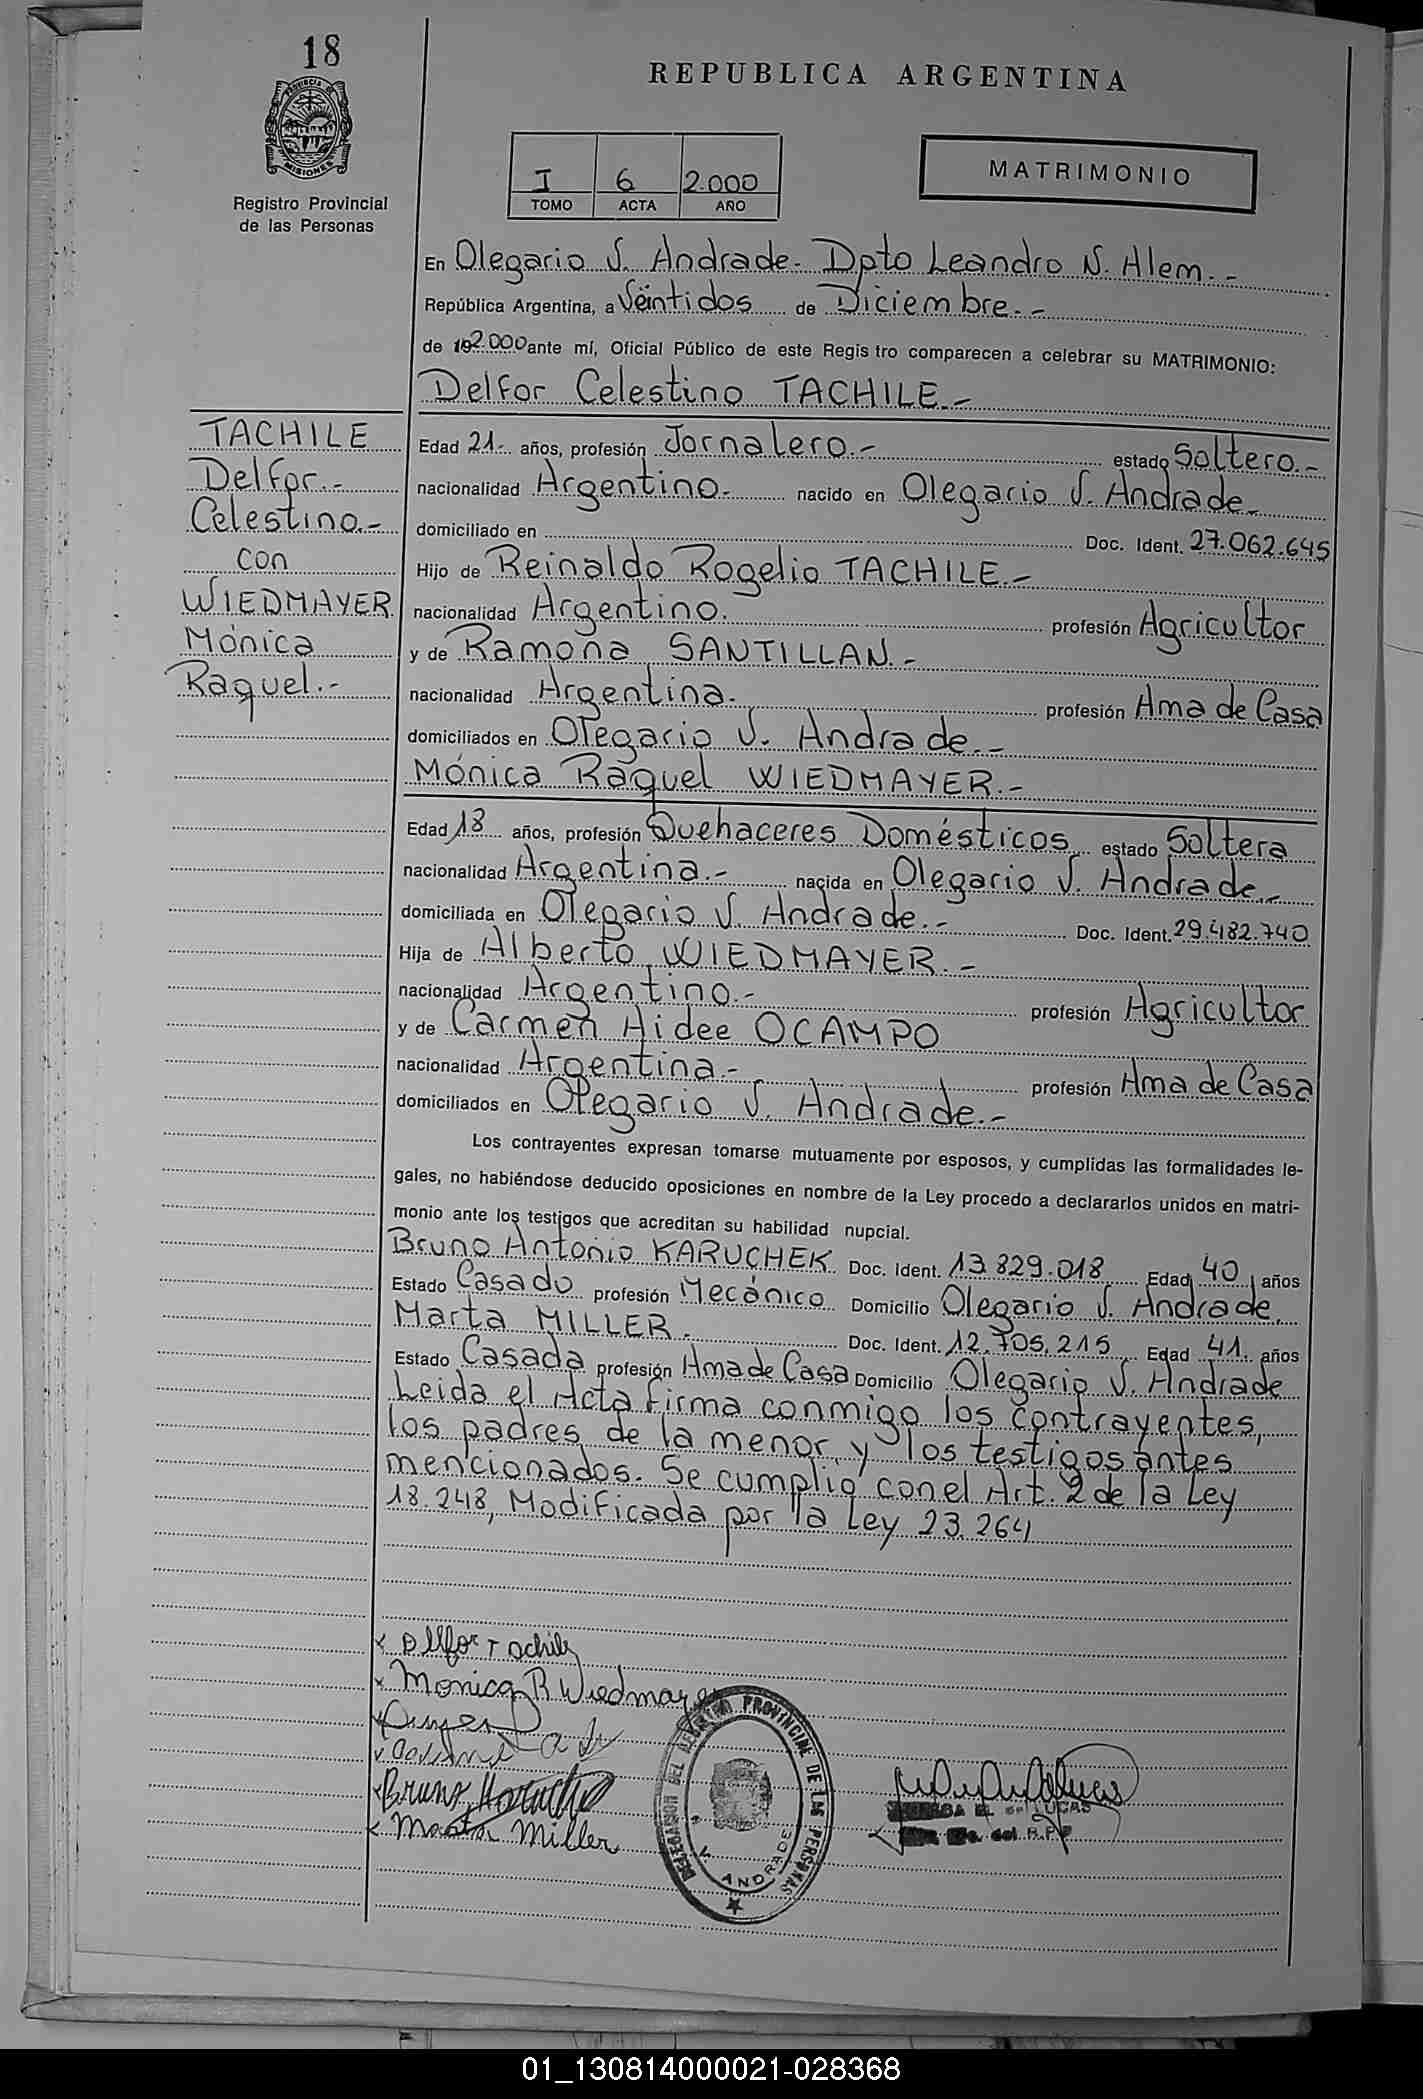 18
REPUBLICA ARGENTINA
PROVINCIA DE MISIONES
Registro Provincial
de las Personas
I 6 2.000
TOMO ACTA AÑO
MATRIMONIO
En Olegario V. Andrade.- Dpto Leandro N. Alem.-
República Argentina, a Veintidos de Diciembre.-
de 192.000 ante mí, Oficial Público de este Regis tro comparecen a celebrar su MATRIMONIO:
Delfor Celestino TACHILE.-
TACHILE
Delfor.-
Celestino.-
con
WIEDMAYER
Mónica
Raquel.-
Edad 21.- años, profesión Jornalero.- estado Soltero.-
nacionalidad Argentino.- nacido en Olegario V. Andrade.-
domiciliado en Doc. Ident. 27.062.645
Hijo de Reinaldo Rogelio TACHILE.-
nacionalidad Argentino. profesión Agricultor
y de Ramona SANTILLAN.-
nacionalidad Argentina.- profesión Ama de Casa
domiciliados en Olegario V. Andrade.-
Mónica Raquel WIEDMAYER.-
Edad 18 años, profesión Quehaceres Domésticos estado Soltera
nacionalidad Argentina.- nacida en Olegario V. Andrade.-
domiciliada en Olegario V. Andrade.- Doc. Ident. 29.482.740
Hija de Alberto WIEDMAYER.-
nacionalidad Argentino.- profesión Agricultor
y de Carmen Aidee OCAMPO
nacionalidad Argentina.- profesión Ama de Casa
domiciliados en Olegario V. Andrade.-
Los contrayentes expresan tomarse mutuamente por esposos, y cumplidas las formalidades le-
gales, no habiéndose deducido oposiciones en nombre de la Ley procedo a declararlos unidos en matri-
monio ante los testigos que acreditan su habilidad nupcial.
Bruno Antonio KARUCHEK Doc. Ident. 13.829.018 Edad 40 años
Estado Casado profesión Mecánico Domicilio Olegario V. Andrade.
Marta MILLER. Doc. Ident. 12.705.215 Edad 41. años
Estado Casada profesión Ama de Casa Domicilio Olegario V. Andrade
Leida el Acta firma conmigo los contrayentes,
los padres de la menor y los testigos antes
mencionados. Se cumplió con el Art. 2 de la Ley
18.248, Modificada por la Ley 23.264
x Delfor Tachile
x Monica R Wiedmayer
x Bruno
x Marta Miller
DELEGACION DEL REGISTRO PROVINCIAL DE LAS PERSONAS
V. ANDRADE
LUCAS
del R.P.P
01_130814000021-028368